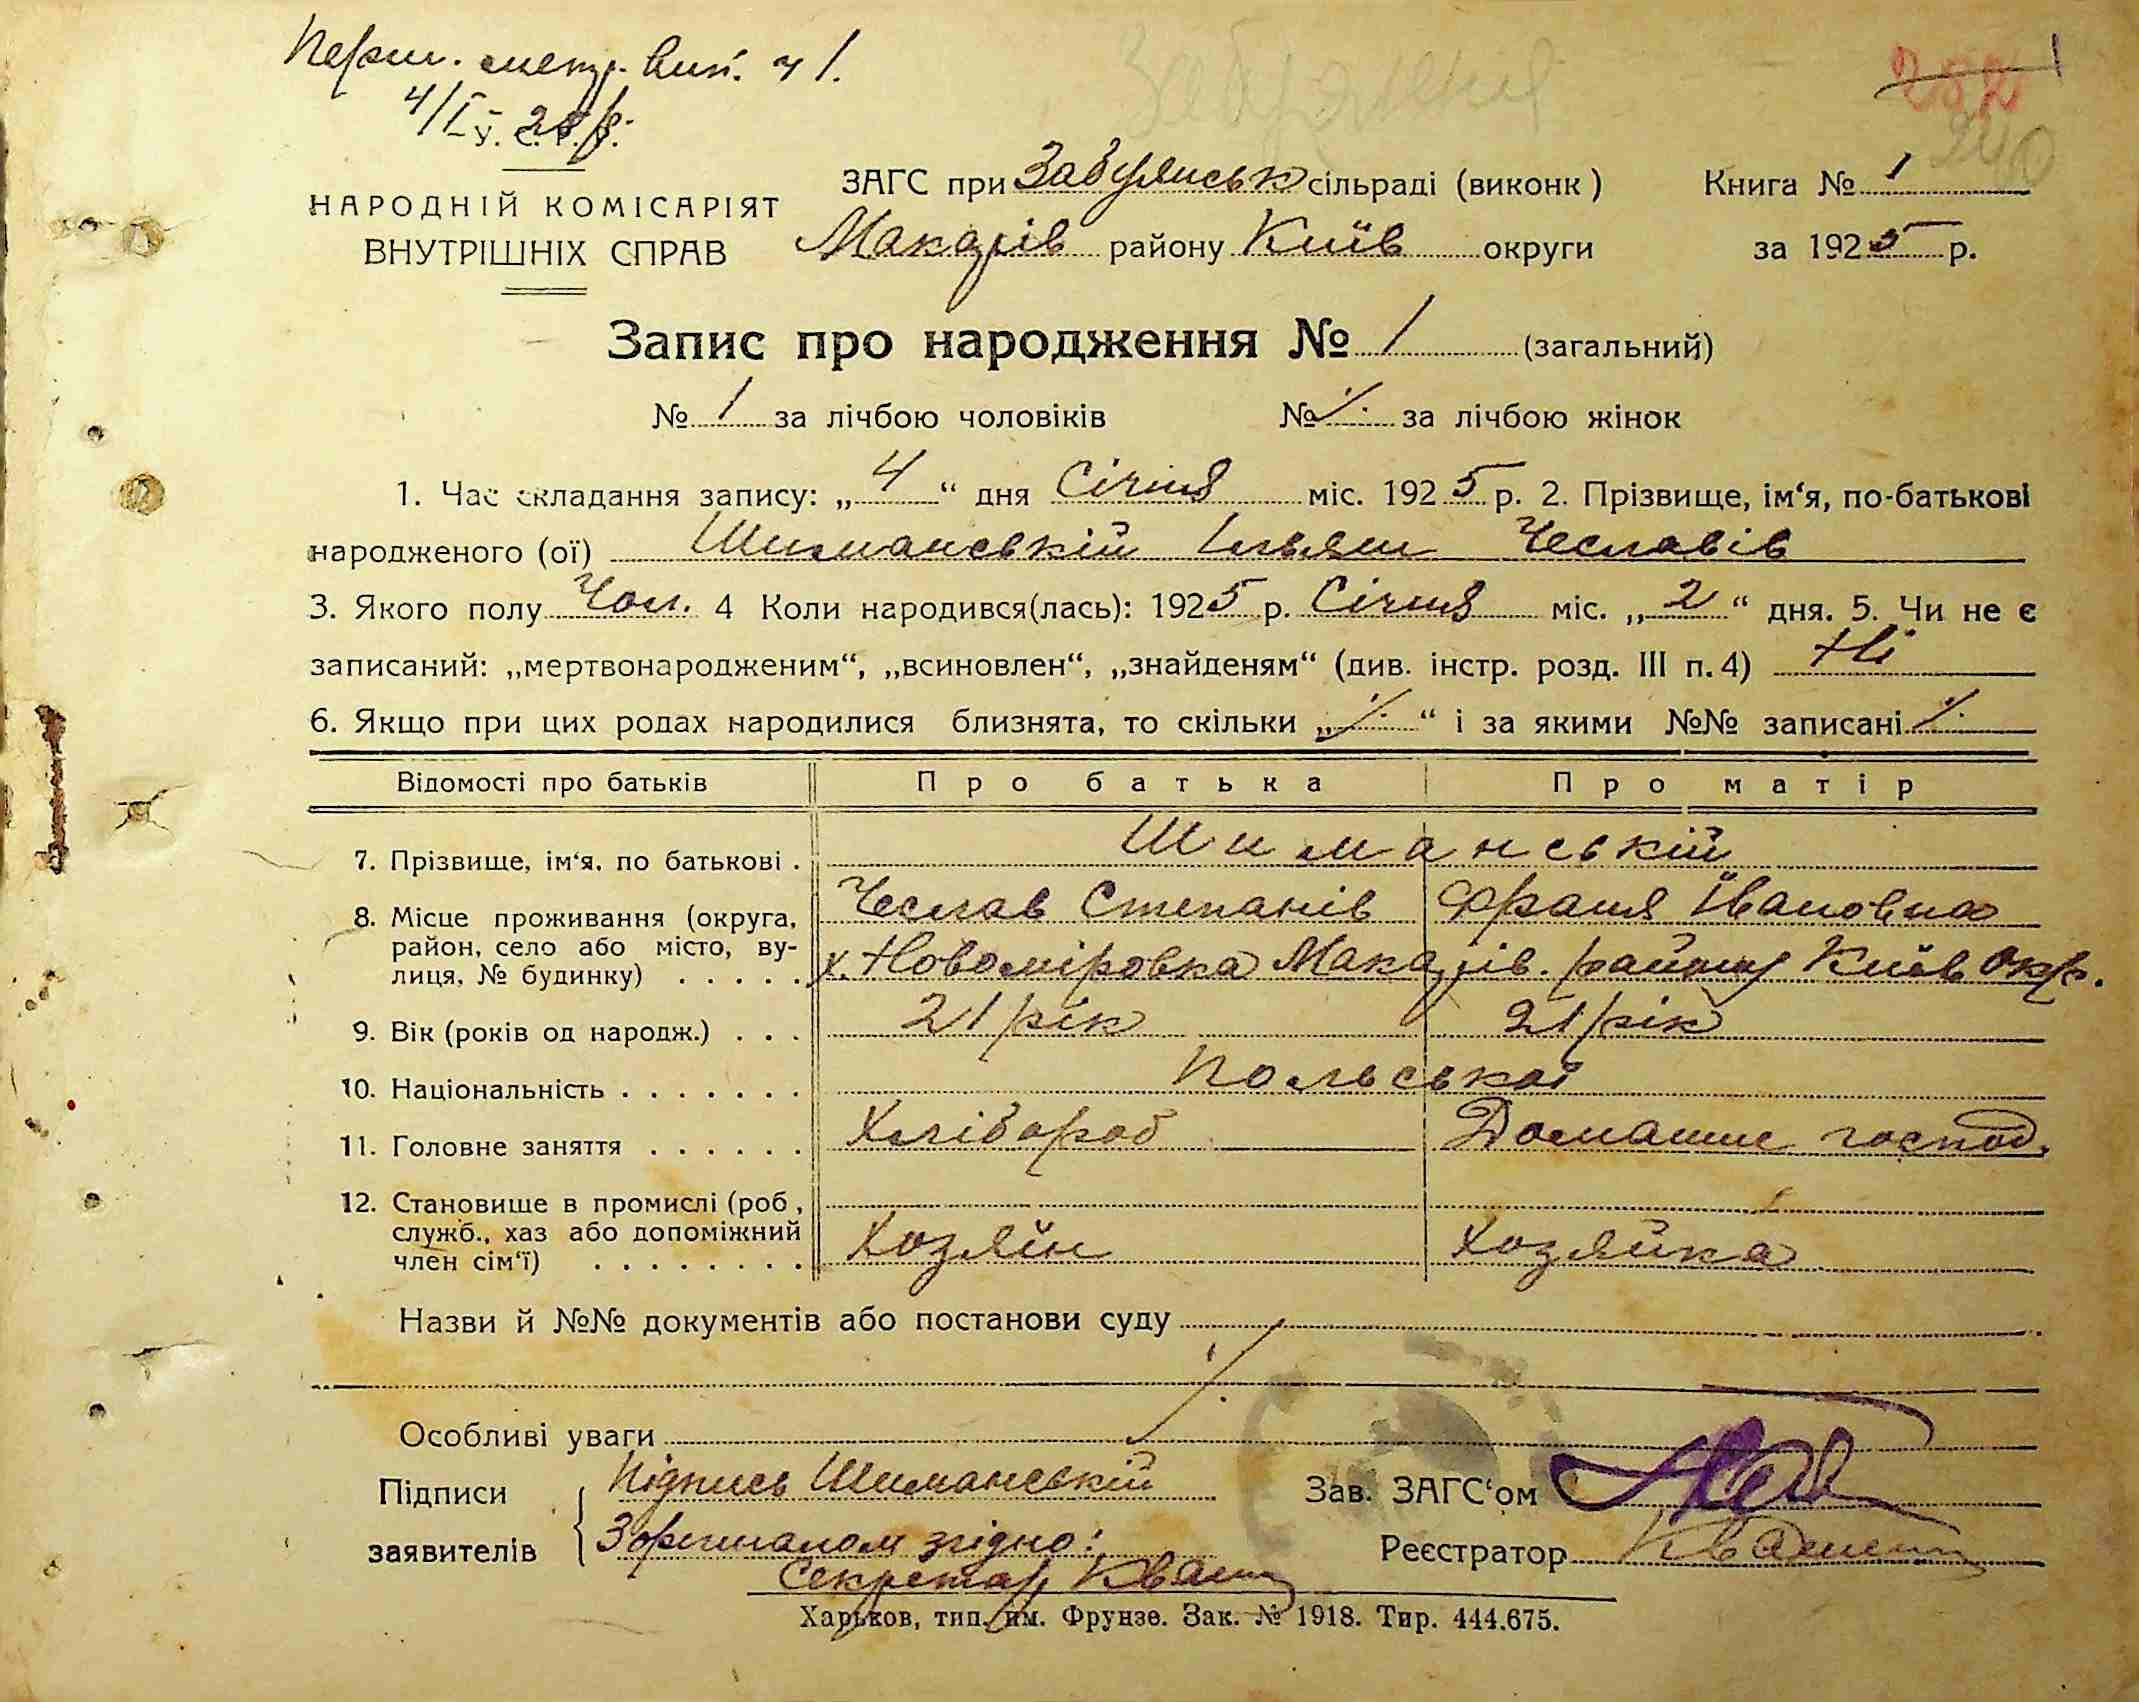 Перш. метр. вип. ч 1.
4/I - 28 р.
У. С. Р. Р.
Забуянськ
252
1
240
НАРОДНІЙ КОМІСАРІЯТ
ВНУТРІШНІХ СПРАВ
ЗАГС при Забуянськ сільраді (виконк)
Книга № 1
Макарів району Київ округи
за 1925 р.
Запис про народження № 1 (загальний)
№ 1 за лічбою чоловіків № ⁒ за лічбою жінок
1. Час складання запису: „4“ дня Січня міс. 1925 р. 2. Прізвище, ім‘я, по-батькові
народженого (ої) Шиманській Чеславів
3. Якого полу Чол. 4 Коли народився(лась): 1925 р. Січня міс. „2“ дня. 5. Чи не є
записаний: „мертвонародженим“, „всиновлен“, „знайденям“ (див. інстр. розд. III п. 4) Ні
6. Якщо при цих родах народилися близнята, то скільки „⁒“ і за якими №№ записані ⁒
Відомості про батьків Про батька Про матір
7. Прізвище, ім‘я, по батькові . Шиманській
Чеслав Степанів Франя Івановна
8. Місце проживання (округа,
район, село або місто, ву-
лиця, № будинку) . . . . . х. Новоміровка Макарів. району Київ Окр.
9. Вік (років од народж.) . . . 21 рік 21 рік
10. Національність . . . . . . . Польської
11. Головне заняття . . . . . . Хлібороб Домашнє господ.
12. Становище в промислі (роб ,
служб., хаз або допоміжний
член сім‘ї) . . . . . . . . Хозяїн Хозяйка
Назви й №№ документів або постанови суду
⁒
Особливі уваги
Підписи Підпись Шиманській Зав. ЗАГС‘ом
заявителів З оригіналом згідно: Реєстратор
Секретар
Харьков, тип. им. Фрунзе. Зак. № 1918. Тир. 444.675.